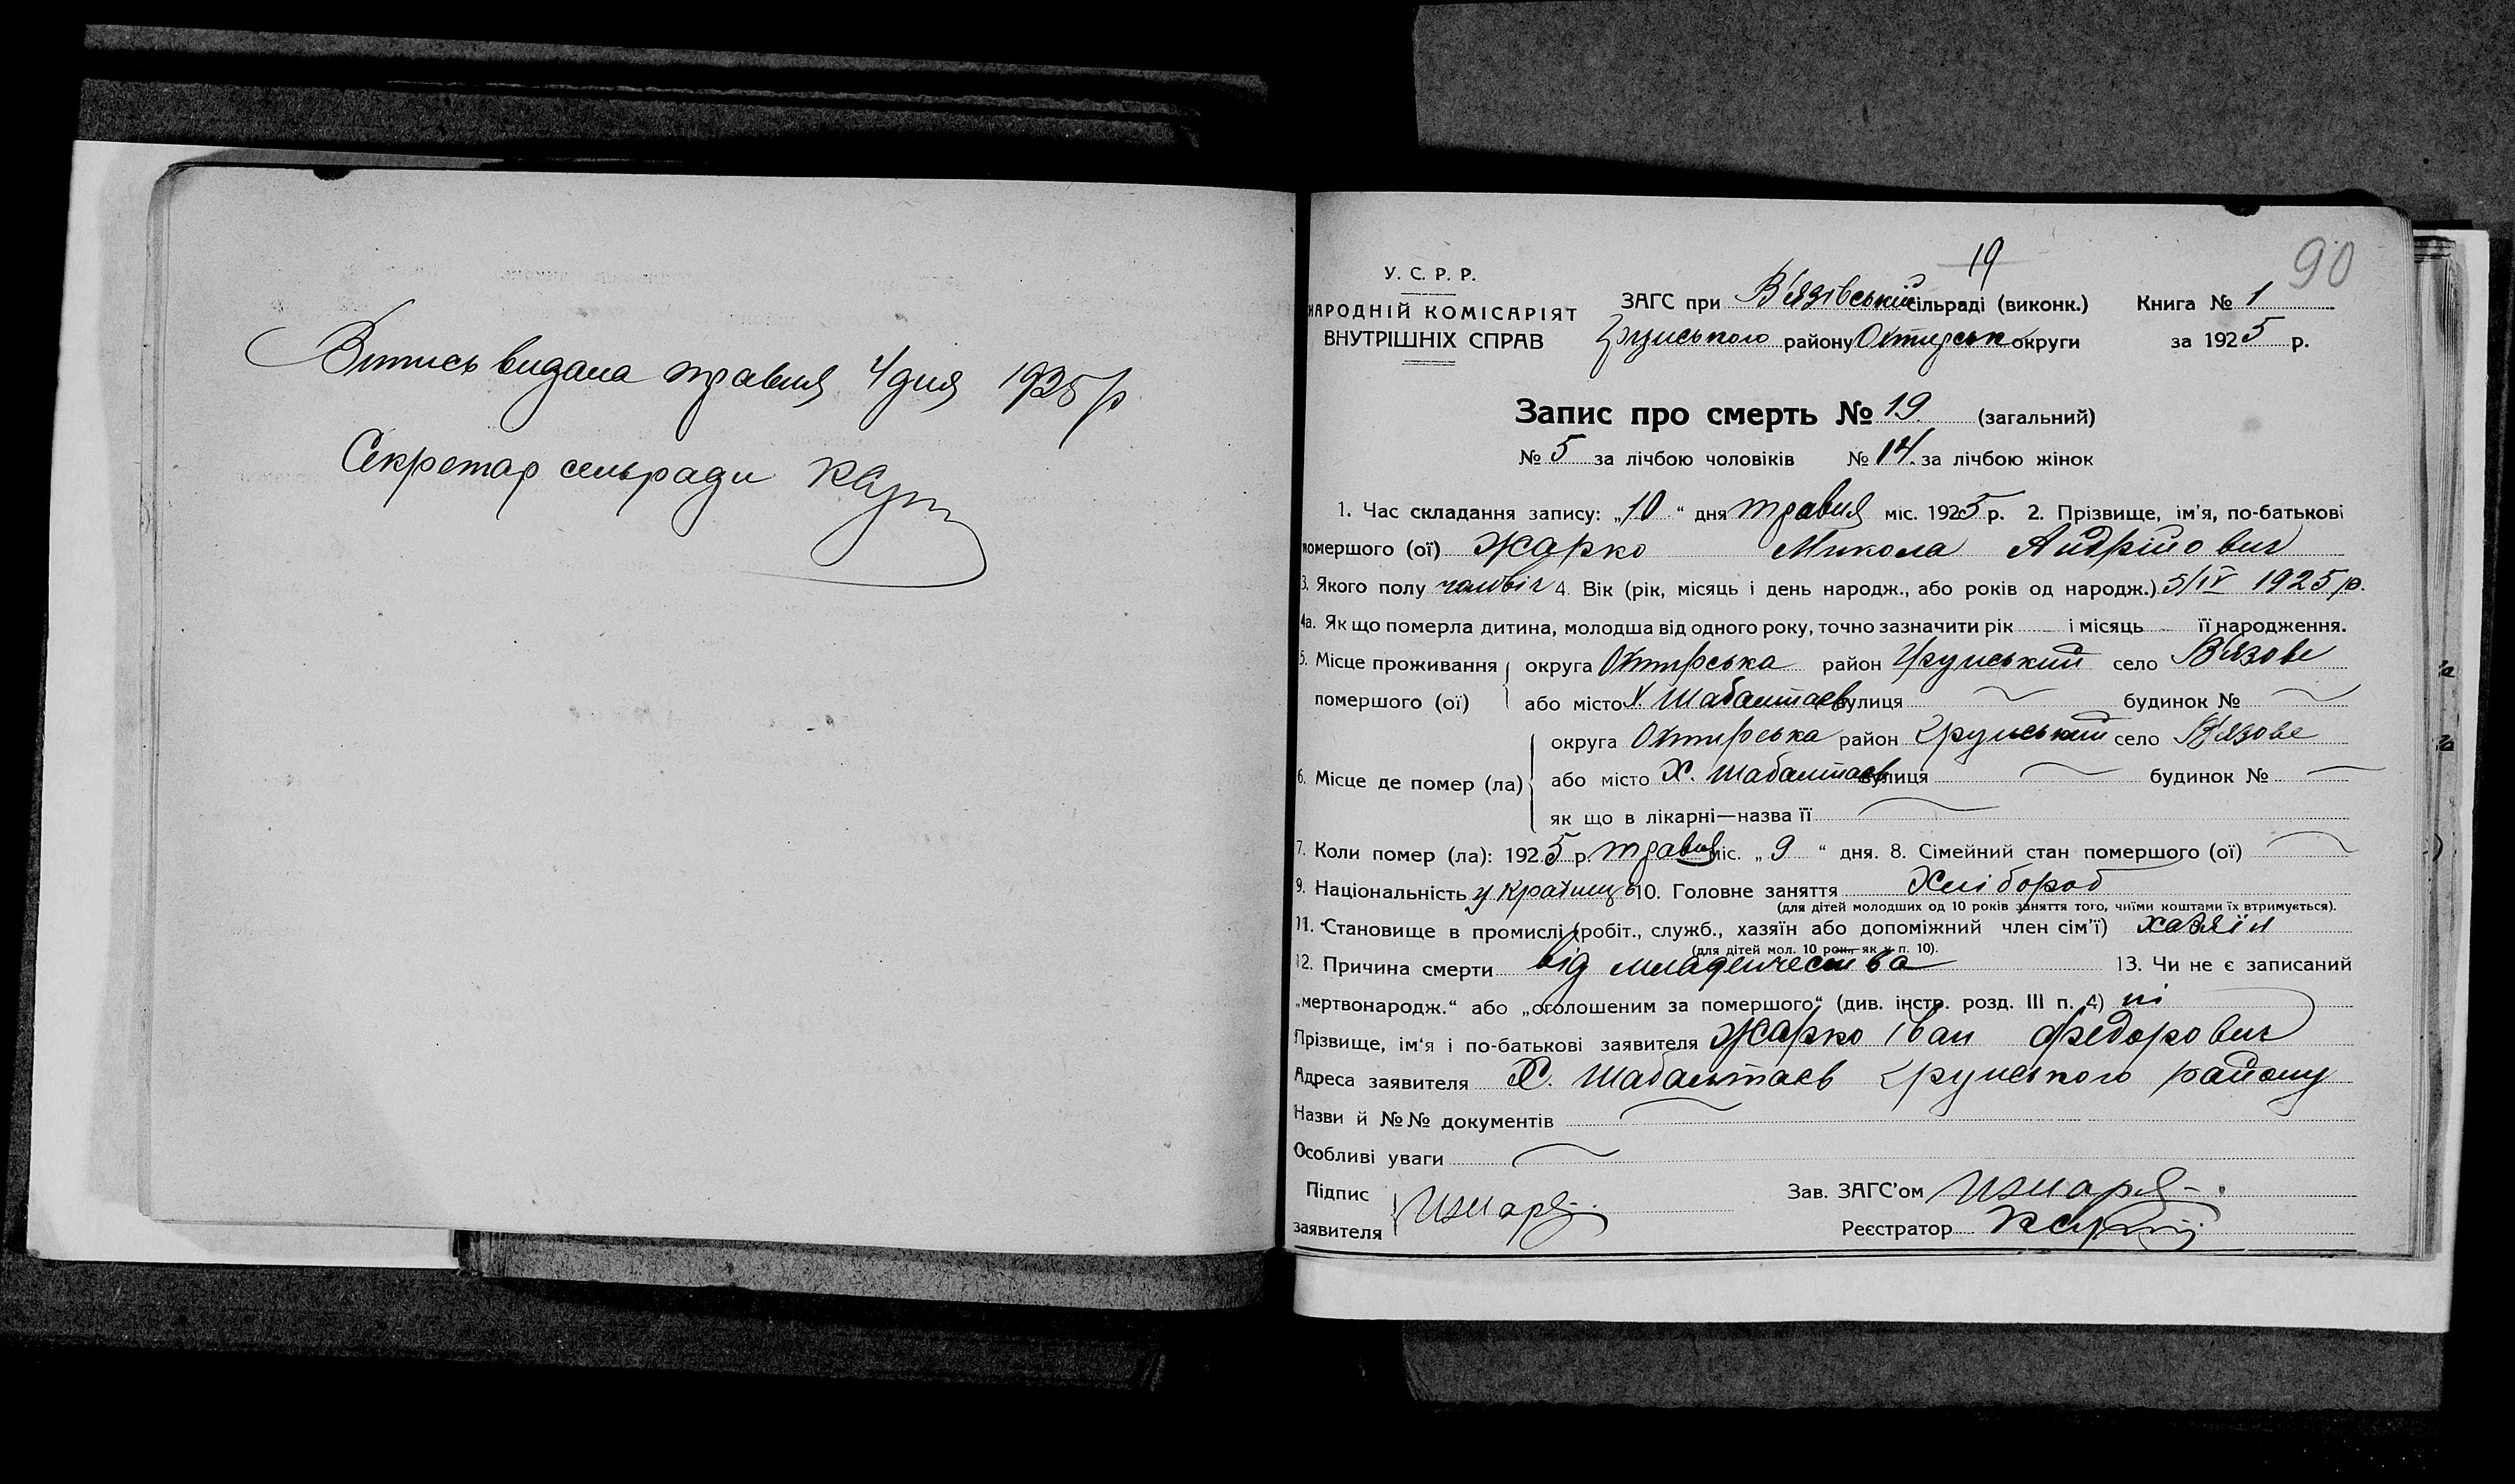 Витись видана травня 4 дня 1925 р
Секретар сельради
19
90
У. С. Р. Р.
НАРОДНІЙ КОМІСАРІЯТ
ВНУТРІШНІХ СПРАВ
ЗАГС при В'язівській сільраді (виконк.) Книга № 1
Грунського району Охтирськ округи за 1925 р.
Запис про смерть № 19. (загальний)
№ 5 за лічбою чоловіків № 14. за лічбою жінок
1. Час складання запису: „10“ дня травня міс. 1925 р. 2. Прізвище, ім'я, по-батькові
помершого (ої) Жарко Микола Андрійович
3. Якого полу чоловіч 4. Вік (рік, місяць і день народж., або років од народж.) 5/IV 1925 р.
4а. Як що померла дитина, молодша від одного року, точно зазначити рік і місяць її народження.
5. Місце проживання помершого (ої) округа Охтирська район Грунський село В'язове
або місто Х. Шабалтаєв вулиця будинок №
6. Місце де помер (ла) округа Охтирська район Грунський село В'язове
або місто Х. Шабалтаєв вулиця будинок №
як що в лікарні—назва її
7. Коли помер (ла): 1925 р. травня міс. „9“ дня. 8. Сімейний стан помершого (ої)
9. Національність українець 10. Головне заняття Хлібороб
(для дітей молодших од 10 років заняття того, чиїми коштами їх втримується).
11. Становище в промислі (робіт., служб., хазяїн або допоміжний член сім'ї) хазяїн
(для дітей мол. 10 рок., як у п. 10).
12. Причина смерти від младенчества 13. Чи не є записаний
„мертвонародж.“ або „оголошеним за помершого“ (див. інстр. розд. III п. 4) ні
Прізвище, ім'я і по-батькові заявителя Жарко Іван Федорович
Адреса заявителя Х. Шабальтаєв Грунського району
Назви й №№ документів
Особливі уваги
Підпис заявителя
Зав. ЗАГС'ом
Реєстратор